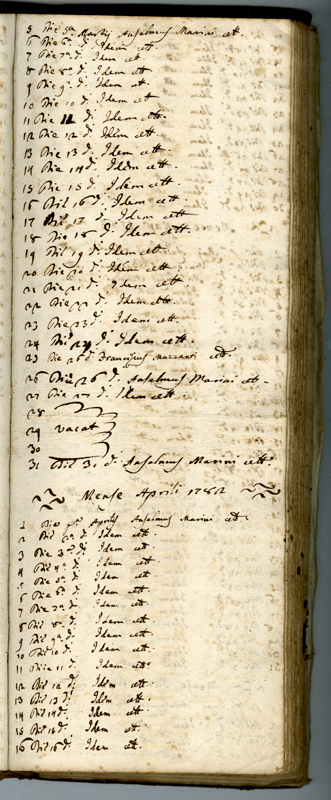 5 Die 5ª Martij Anselmus Marini ett.
6 Die 6ª d.º Idem ett.
7 Die 7ª d.º Idem ett.
8 Die 8ª d.º Idem ett.
9 Die 9ª d.º Idem ett.
10 Die 10 d.º Idem ett.
11 Die 11 d.º Idem ett.
12 Die 12 d.º Idem ett.
13 Die 13 d.º Idem ett.
14 Die 14 d.º Idem ett.
15 Die 15 d.º Idem ett.
16 Die 16 d.º Idem ett.
17 Die 17 d.º Idem ett.
18 Die 18 d.º Idem ett.
19 Die 19 d.º Idem ett.
20 Die 20 d.º Idem ett.
21 Die 21 d.º Idem ett.
22 Die 22 d.º Idem ett.
23 Die 23 d.º Idem ett.
24 Die 24 d.º Idem ett.
25 Die 25 d.º Franciscus ett.
26 Die 26 d.º Anselmus Marini ett.
27 Die 27 d.º Idem ett.
28
29 vacat
30
31 Die 31 d.º Anselmus Marini ett.
Mense Aprili 1782
1 Die pª Aprilis Anselmus Marini ett.
2 Die 2ª d.º Idem ett.
3 Die 3ª d.º Idem ett.
4 Die 4ª d.º Idem ett.
5 Die 5ª d.º Idem ett.
6 Die 6ª d.º Idem ett.
7 Die 7ª d.º Idem ett.
8 Die 8ª d.º Idem ett.
9 Die 9ª d.º Idem ett.
10 Die 10 d.º Idem ett.
11 Die 11 d.º Idem ett.
12 Die 12 d.º Idem ett.
13 Die 13 d.º Idem ett.
14 Die 14 d.º Idem ett.
15 Die 15 d.º Idem ett.
16 Die 16 d.º Idem ett.